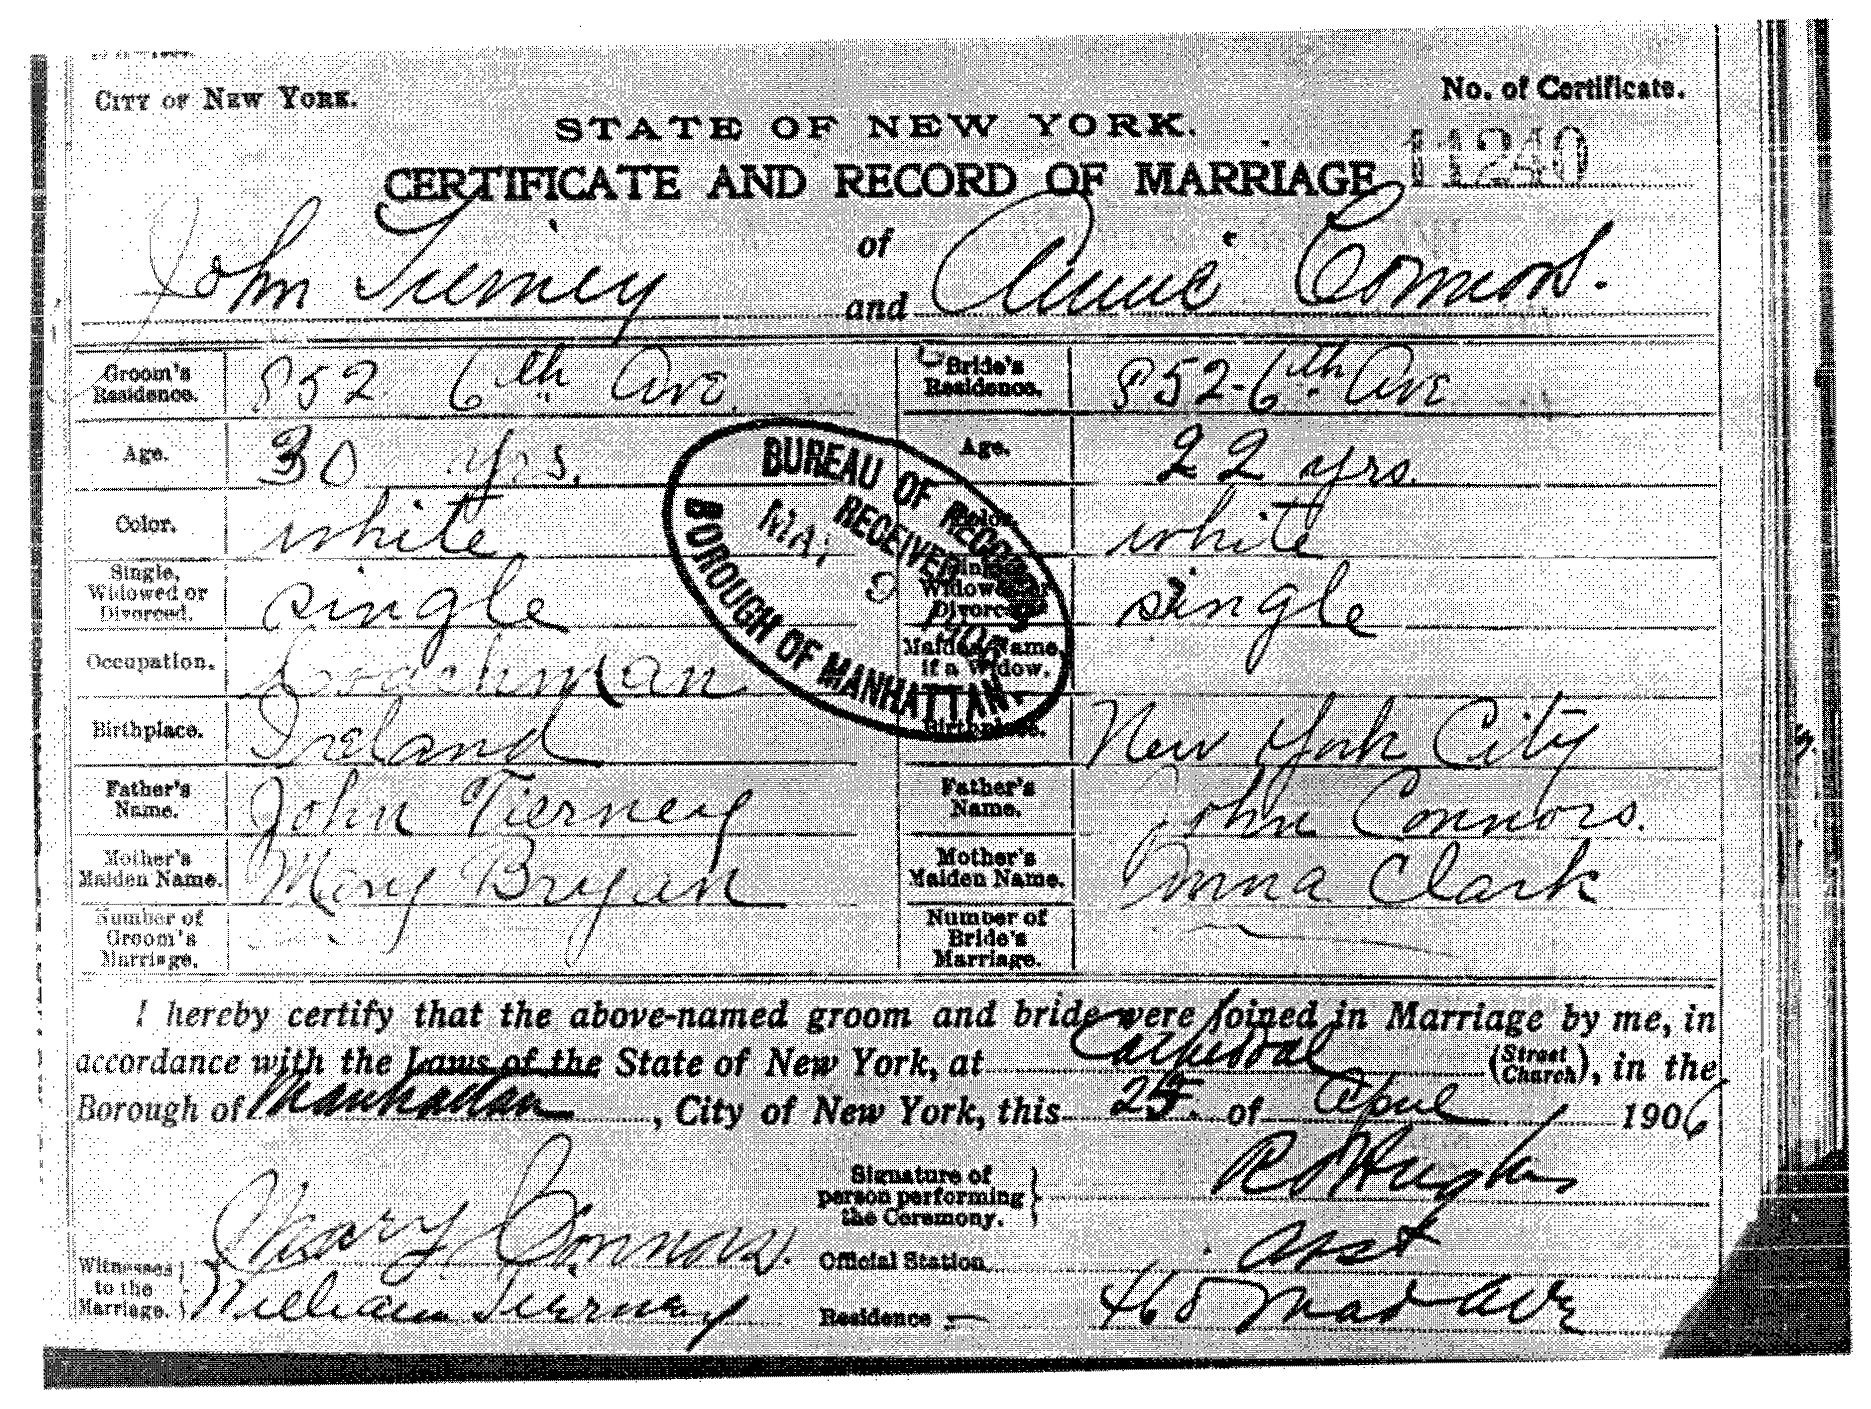 CITY OF NEW YORK.
No. of Certificate.
STATE OF NEW YORK.
11240
CERTIFICATE AND RECORD OF MARRIAGE
of
John Tierney and Annie Connors.
Groom's Residence. 852 6th Ave. Bride's Residence. 852-6th Ave
Age. 30 yrs. Age. 22 yrs.
Color. white Color. white
Single, Widowed or Divorced. single Single, Widowed or Divorced. single
Occupation. Coachman Maiden Name, if a Widow.
Birthplace. Ireland Birthplace. New York City
Father's Name. John Tierney Father's Name. John Connors.
Mother's Maiden Name. Mary Bryan Mother's Maiden Name. Clark
Number of Groom's Marriage. Number of Bride's Marriage.
BUREAU OF RECORDS
RECEIVED
MAY 3
BOROUGH OF MANHATTAN.
I hereby certify that the above-named groom and bride were joined in Marriage by me, in
accordance with the Laws of the State of New York, at Cathedral (Street Church), in the
Borough of Manhattan, City of New York, this 25. of April 1906
Signature of person performing the Ceremony.
Witnesses to the Marriage. Mary Connors.
William Tierney
Official Station Asst
Residence 460 Mad Ave